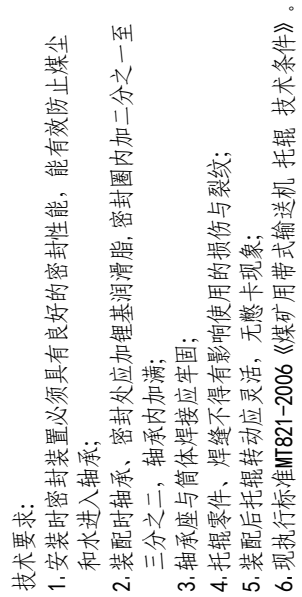 技术要求:
1. 安装时密封装置必须具有良好的密封性能，能有效防止煤尘
和水进入轴承;
2. 装配时轴承、密封处应加锂基润滑脂, 密封圈内加二分之一至
三分之二，轴承内加满;
3. 轴承座与筒体焊接应牢固;
4. 托辊零件、焊缝不得有影响使用的损伤与裂纹;
5. 装配后托辊转动应灵活，无憋卡现象;
6. 现执行标准MT821-2006《煤矿用带式输送机 托辊 技术条件》。